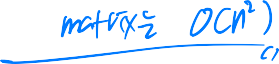 matrix는 O(n²)